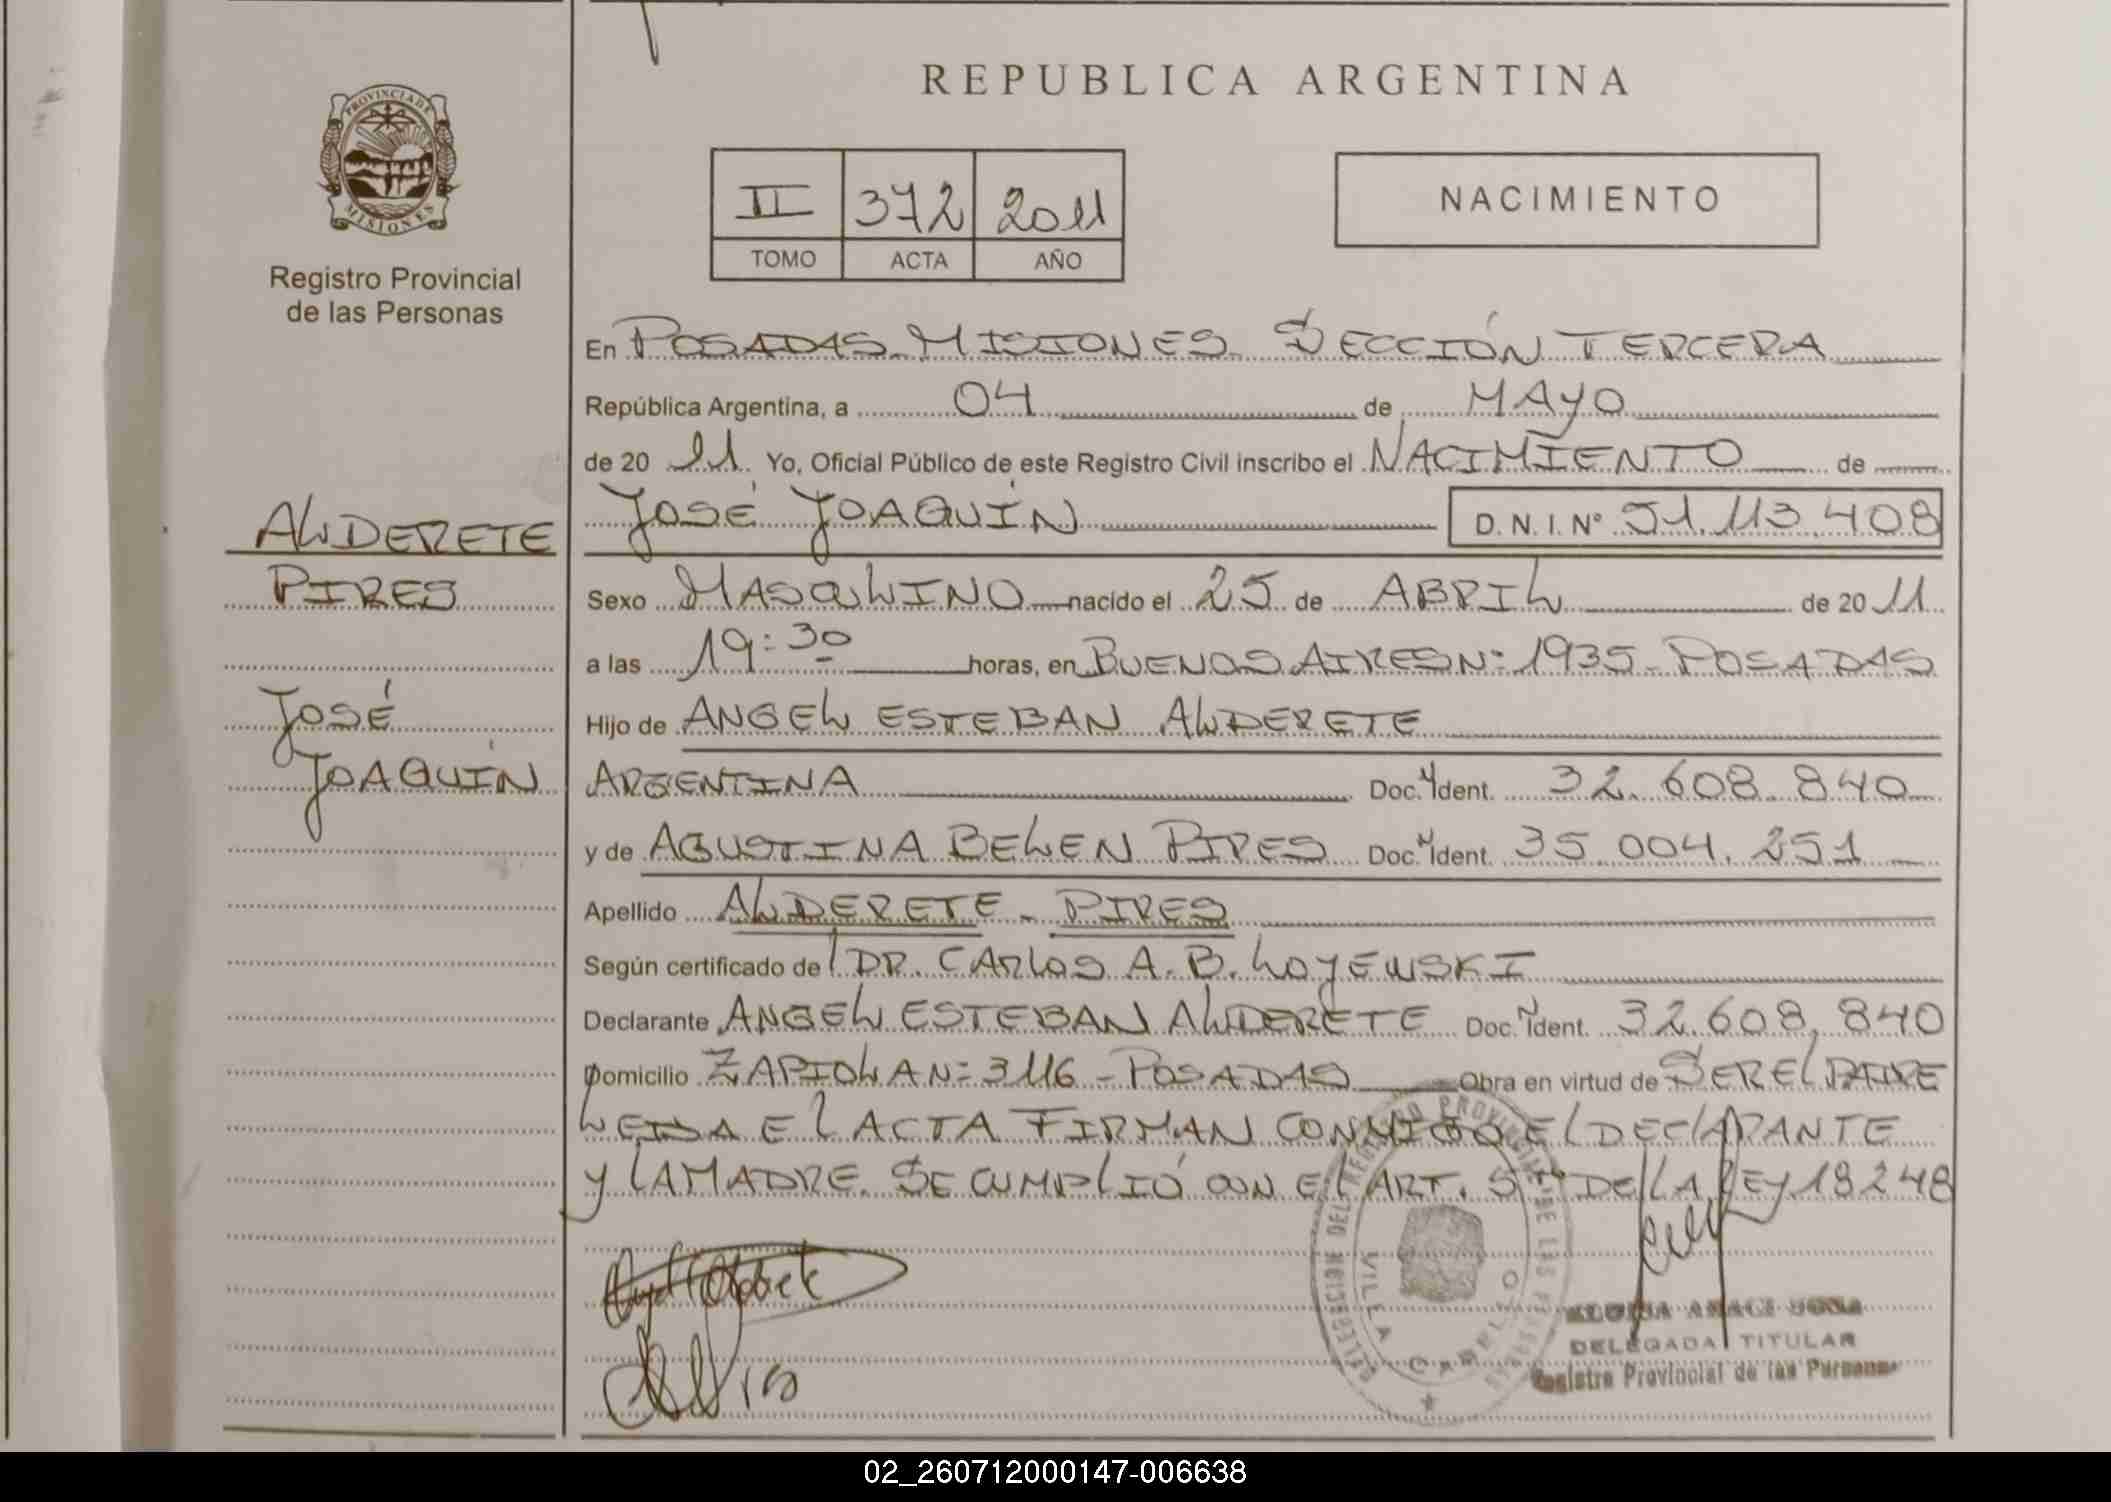 PROVINCIA DE
MISIONES
Registro Provincial
de las Personas
ALDERETE
PIRES
JOSÉ
JOAQUÍN
REPUBLICA ARGENTINA
II 372 2011
TOMO ACTA AÑO
NACIMIENTO
En POSADAS MISIONES SECCIÓN TERCERA
República Argentina, a 04 de MAYO
de 20 11 Yo, Oficial Público de este Registro Civil inscribo el NACIMIENTO de
JOSÉ JOAQUÍN D.N.I. Nº 51.113.408
Sexo MASCULINO nacido el 25 de ABRIL de 20 11
a las 19:30 horas, en BUENOS AIRES Nº 1935 - POSADAS
Hijo de ANGEL ESTEBAN ALDERETE
ARGENTINA Doc. Ident. 32.608.840
y de AGUSTINA BELEN PIRES Doc. Ident. 35.004.251
Apellido ALDERETE - PIRES
Según certificado de DR. CARLOS A. B. LOYEWSKI
Declarante ANGEL ESTEBAN ALDERETE Doc. Ident. 32.608.840
Domicilio ZAPIOLA Nº 3116 - POSADAS Obra en virtud de SER EL PADRE
LEIDA EL ACTA FIRMAN CONMIGO EL DECLARANTE
Y LA MADRE. SE CUMPLIÓ CON EL ART. 5to DE LA LEY 18248
DELEGACION DEL REGISTRO PROVINCIAL DE LAS PERSONAS
VILLA CABELLO
DELEGADA TITULAR
Registro Provincial de las Personas
02_260712000147-006638